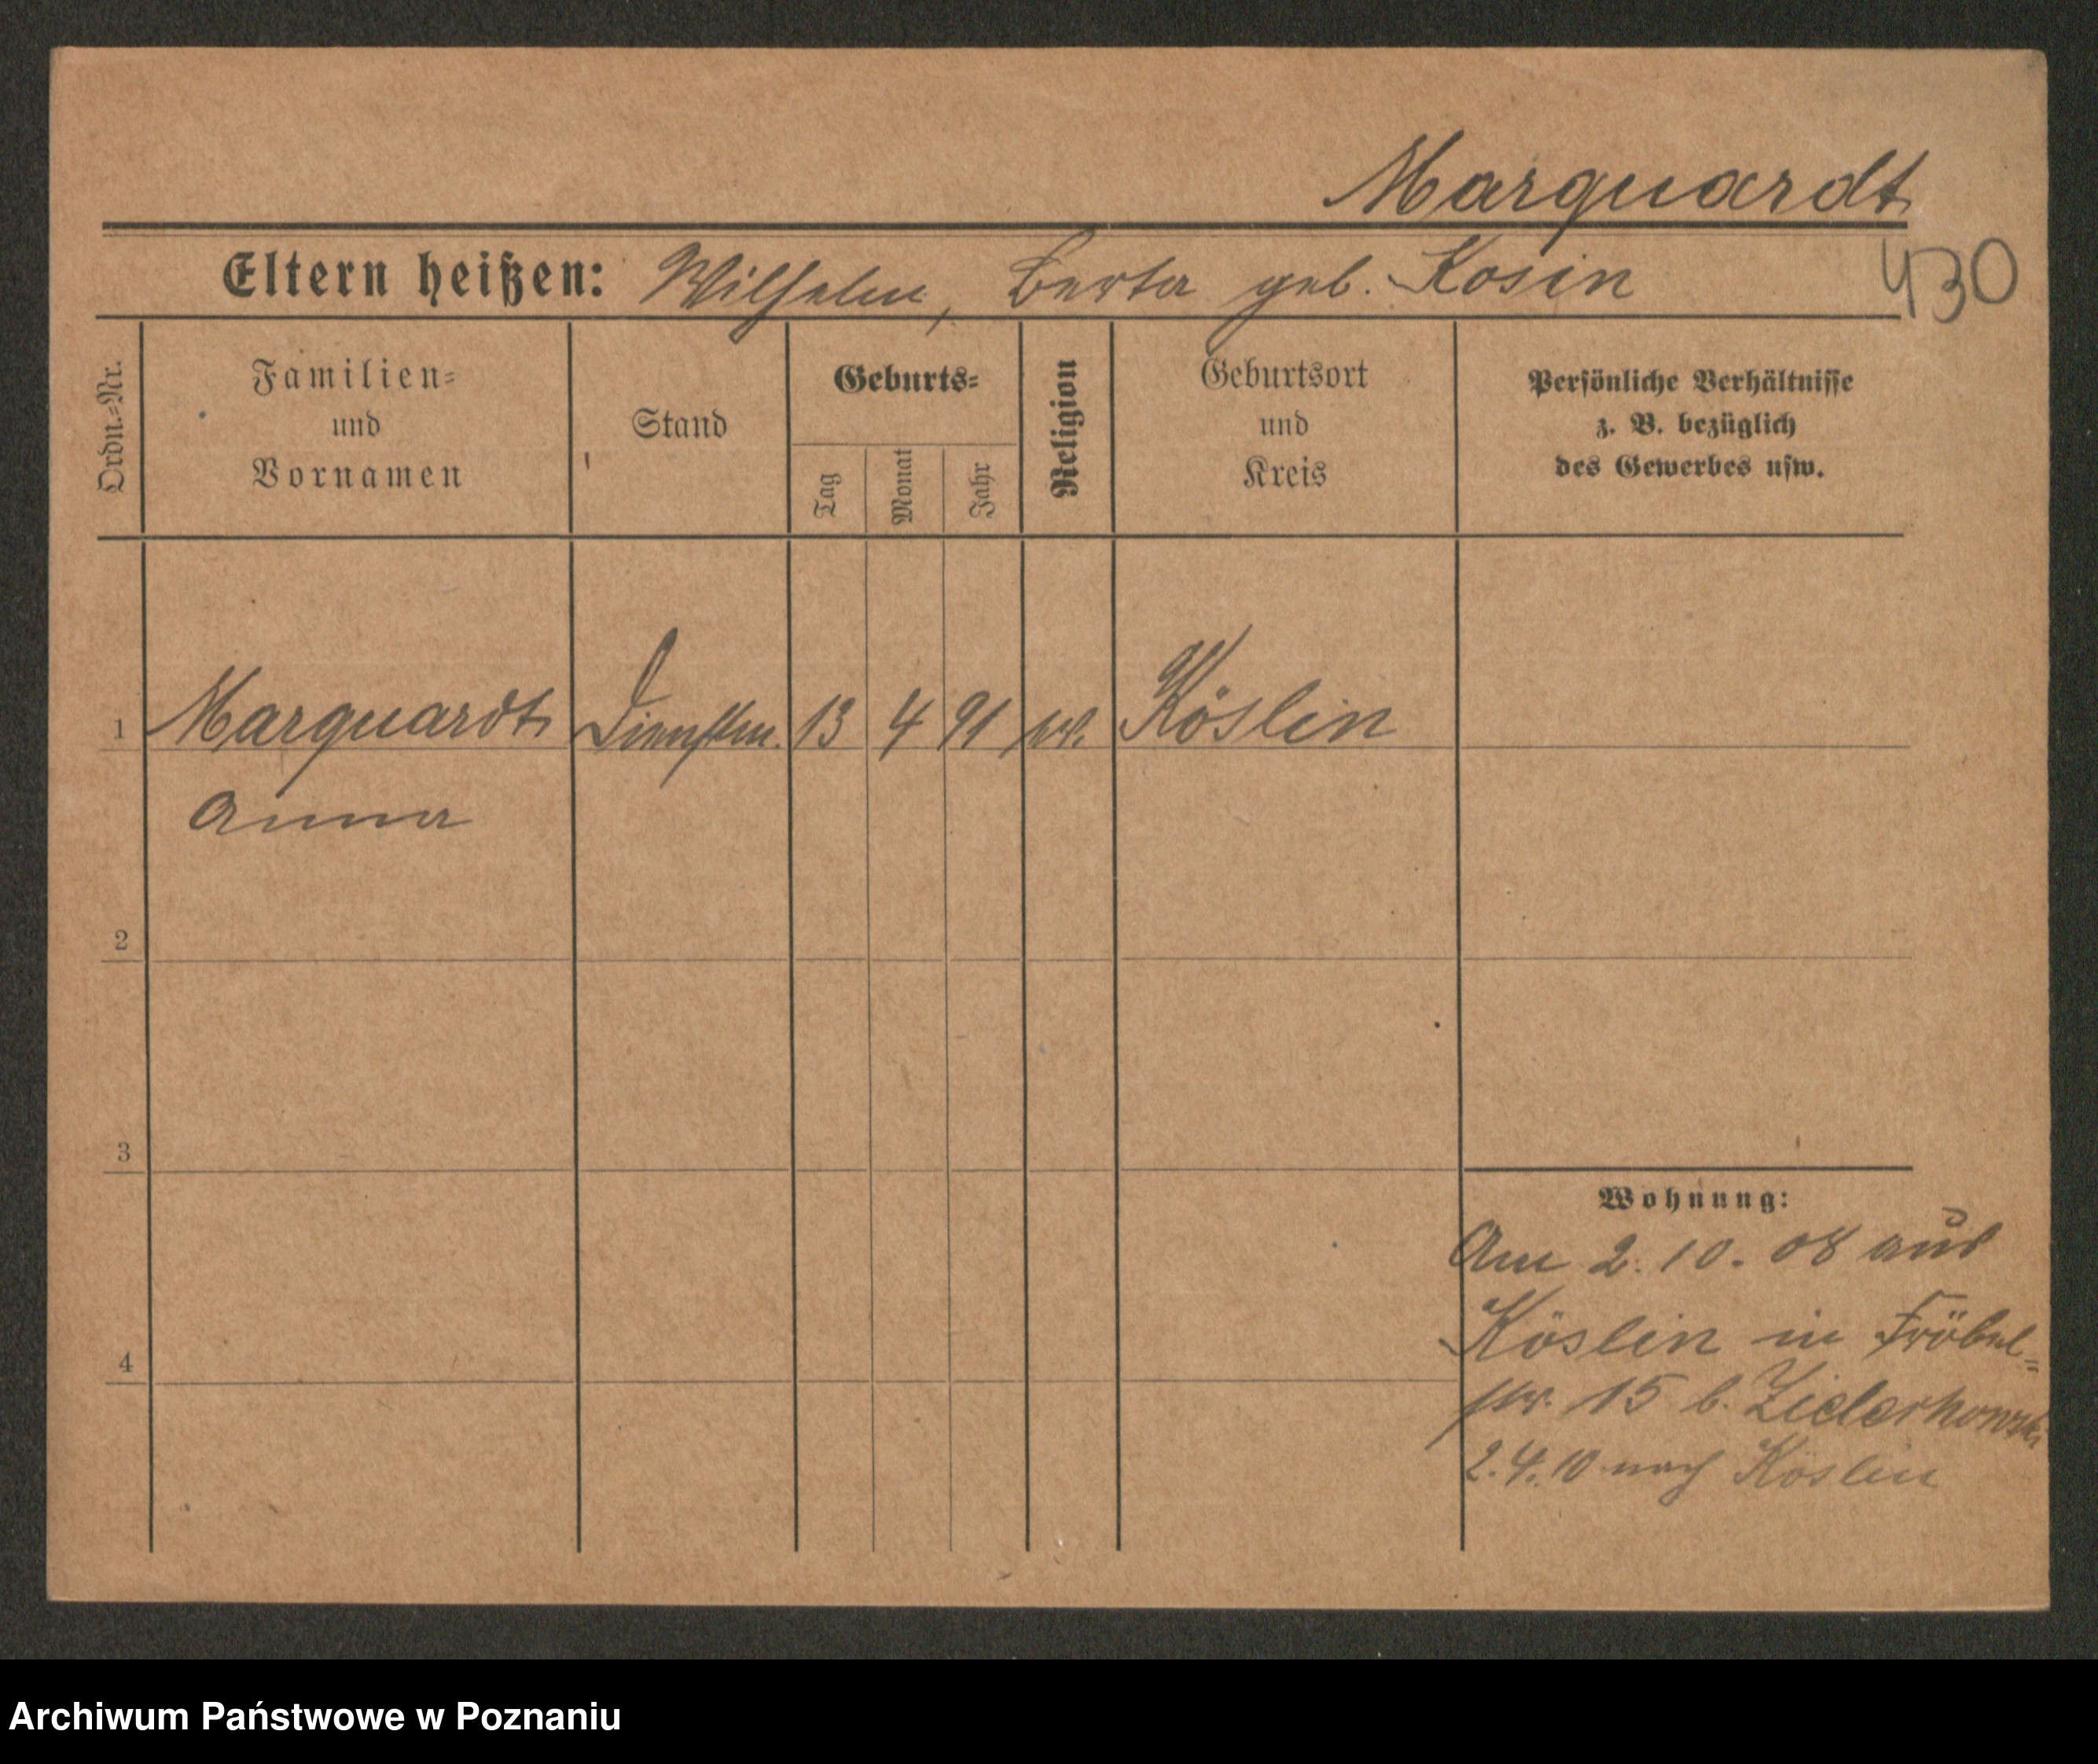 Marquardt
430
Eltern heißen: Wilhelm, Berta geb. Kosin
Ordn.=Nr.
Familien=
und
Vornamen
Stand
Geburts=
Tag
Monat
Jahr
Religion
Geburtsort
und
Kreis
Persönliche Verhältnisse
z. B. bezüglich
des Gewerbes usw.
1 Marquardt Dienstm. 13 4 91 ev. Köslin
Anna
2
3
Wohnung:
Am 2. 10. 08 aus
Köslin in Fröbel=
4
str. 15 b.
2. 4. 10 nach Köslin
Archiwum Państwowe w Poznaniu